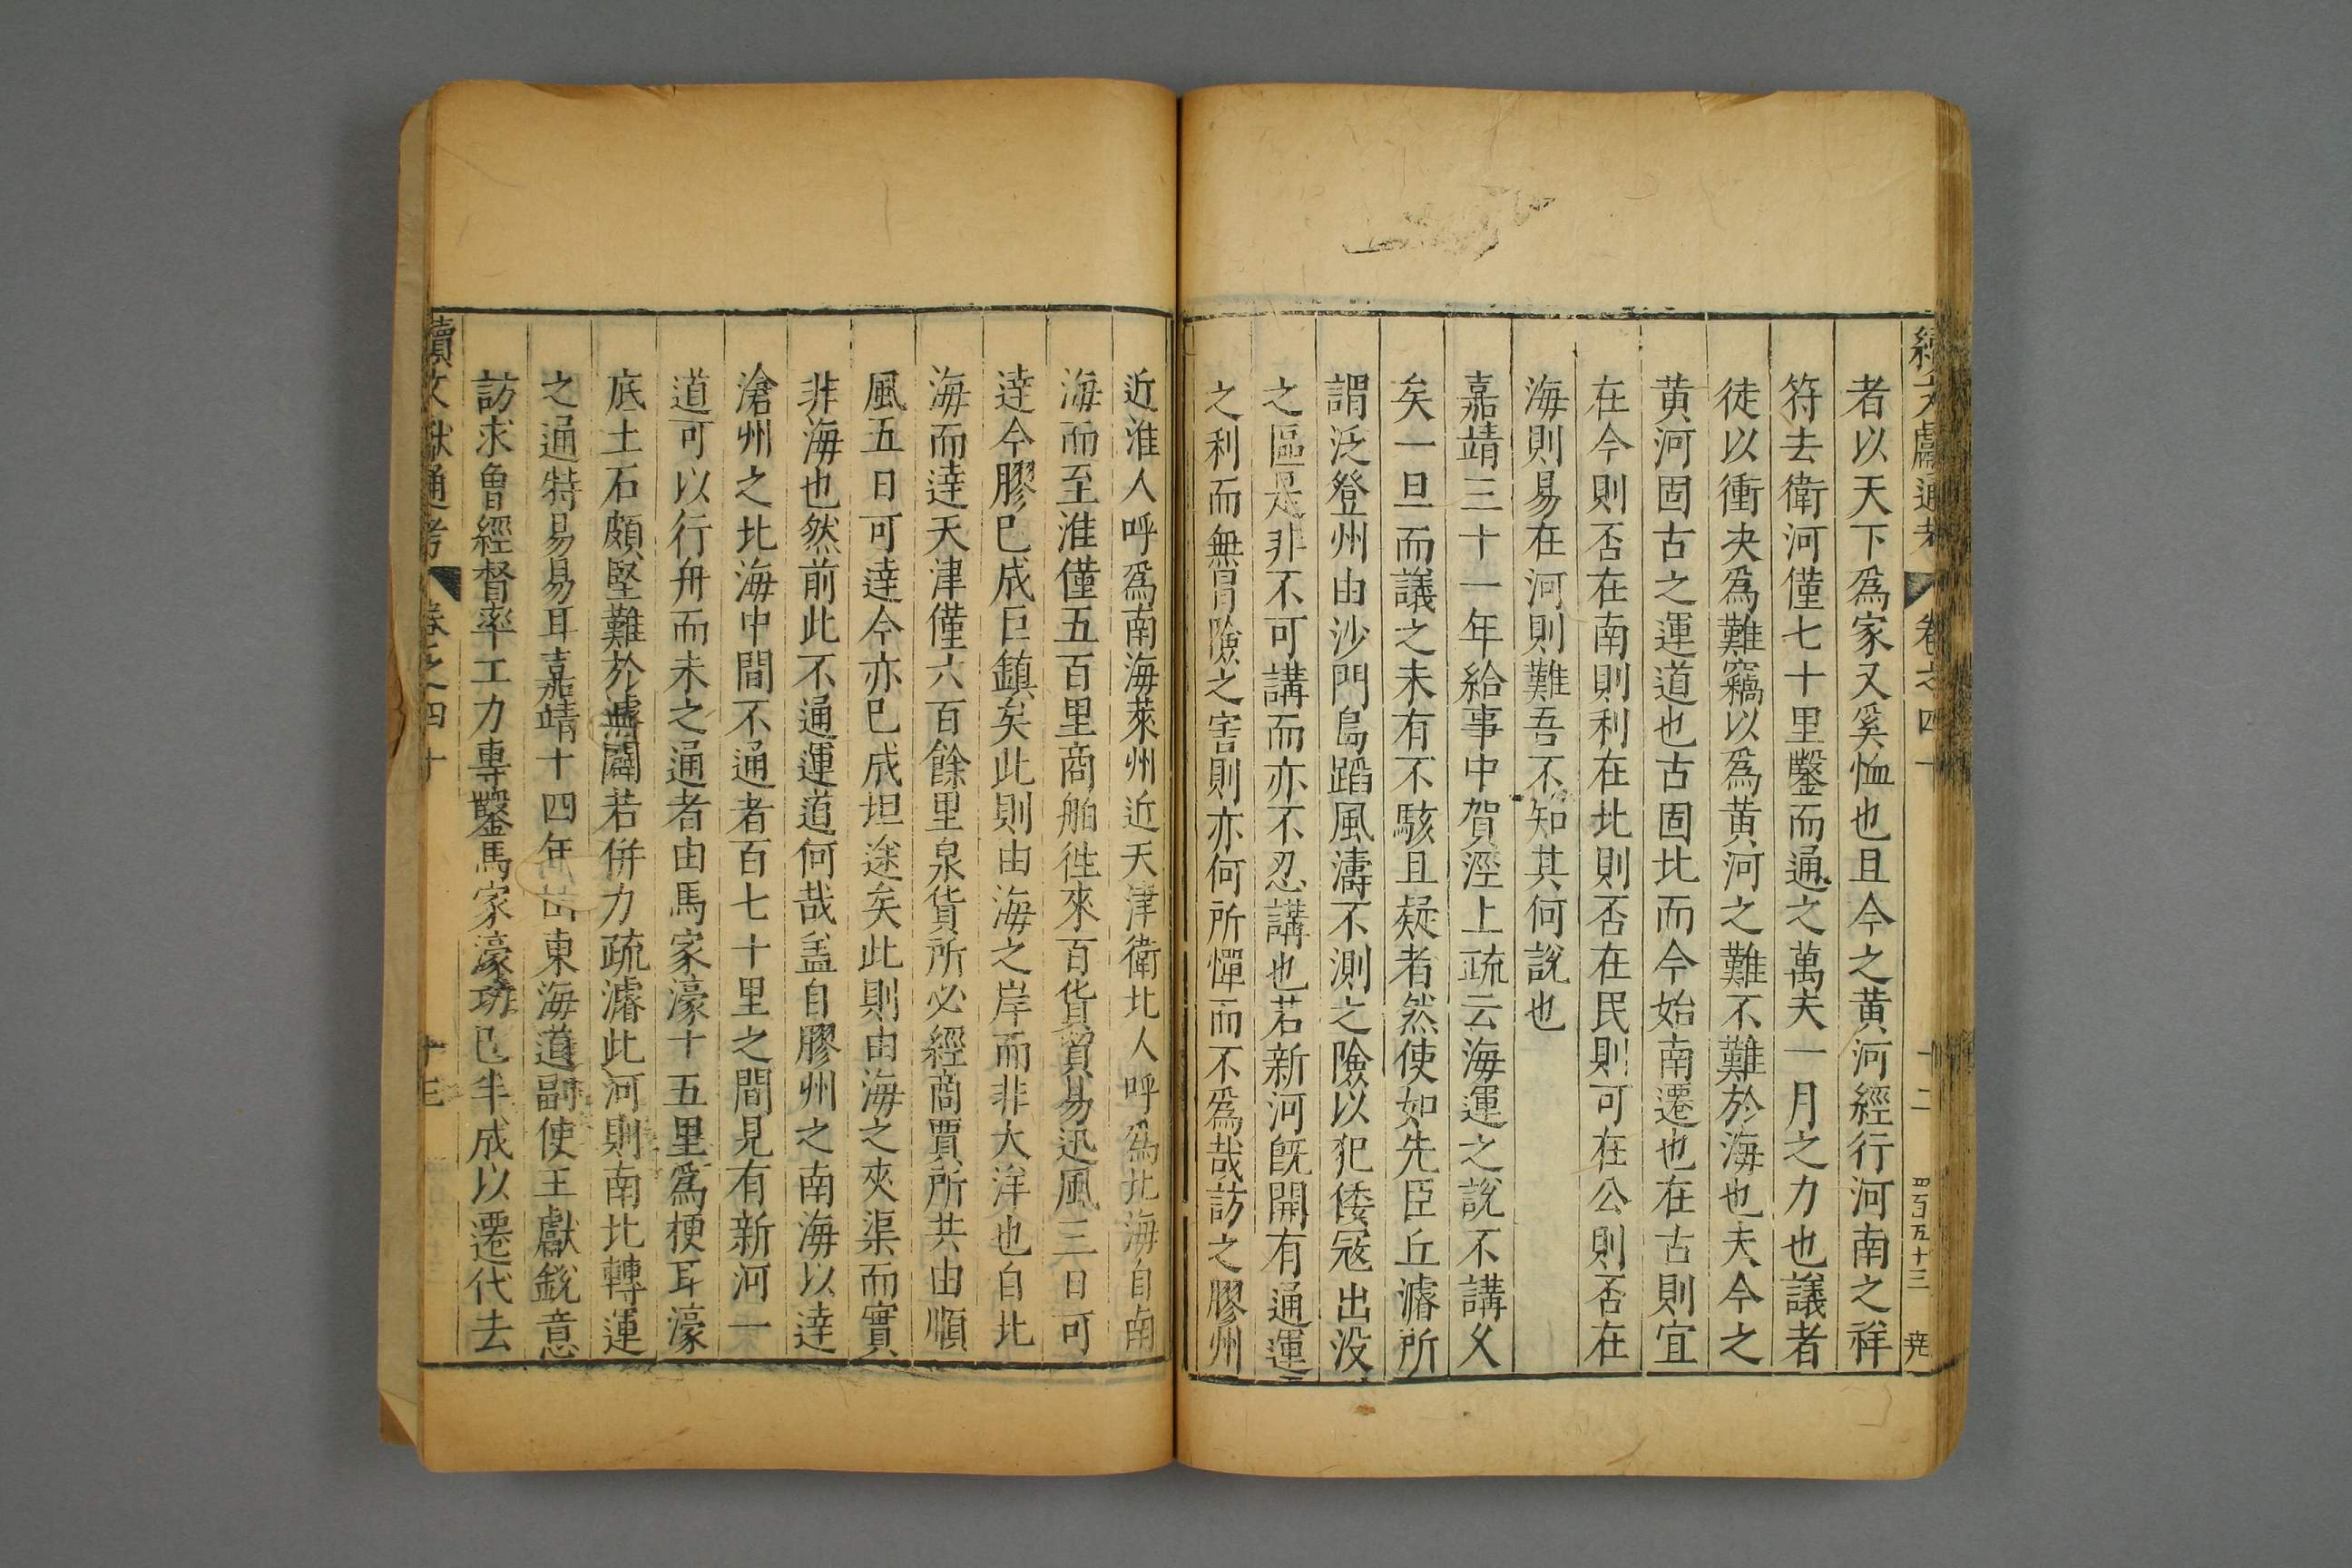 續文獻通考 卷之四十 十二 四百五十三 尭
者以天下爲家又奚恤也且今之黄河經行河南之祥
符去衛河僅七十里鑿而通之萬夫一月之力也議者
徒以衝决爲難竊以爲黄河之難不難於海也夫今之
黄河固古之運道也古固北而今始南遷也在古則宜
在今則否在南則利在北則否在民則可在公則否在
海則易在河則難吾不知其何說也
嘉靖三十一年給事中賀涇上疏云海運之說不講乆
矣一旦而議之未有不駭且疑者然使如先臣丘濬所
謂泛登州由沙門島蹈風濤不測之險以犯倭寇出没
之區是非不可講而亦不忍講也若新河旣開有通運
之利而無冒險之害則亦何所憚而不爲哉訪之膠州
近淮人呼爲南海萊州近天津衛北人呼爲北海自南
海而至淮僅五百里商舶徃來百貨貿易迅風三日可
逹今膠已成巨鎮矣此則由海之岸而非大洋也自北
海而逹天津僅六百餘里泉貨所必經商賈所共由順
風五日可逹今亦已成坦途矣此則由海之夾渠而實
非海也然前此不通運道何哉盖自膠州之南海以逹
滄州之北海中間不通者百七十里之間見有新河一
道可以行舟而未之通者由馬家濠十五里爲梗耳濠
底土石頗堅難於開闢若併力疏濬此河則南北轉運
之通特易易耳嘉靖十四年山東海道副使王獻銳意
訪求魯經督率工力專鑿馬家濠功已半成以遷代去
續文獻通考 卷之四十 十三